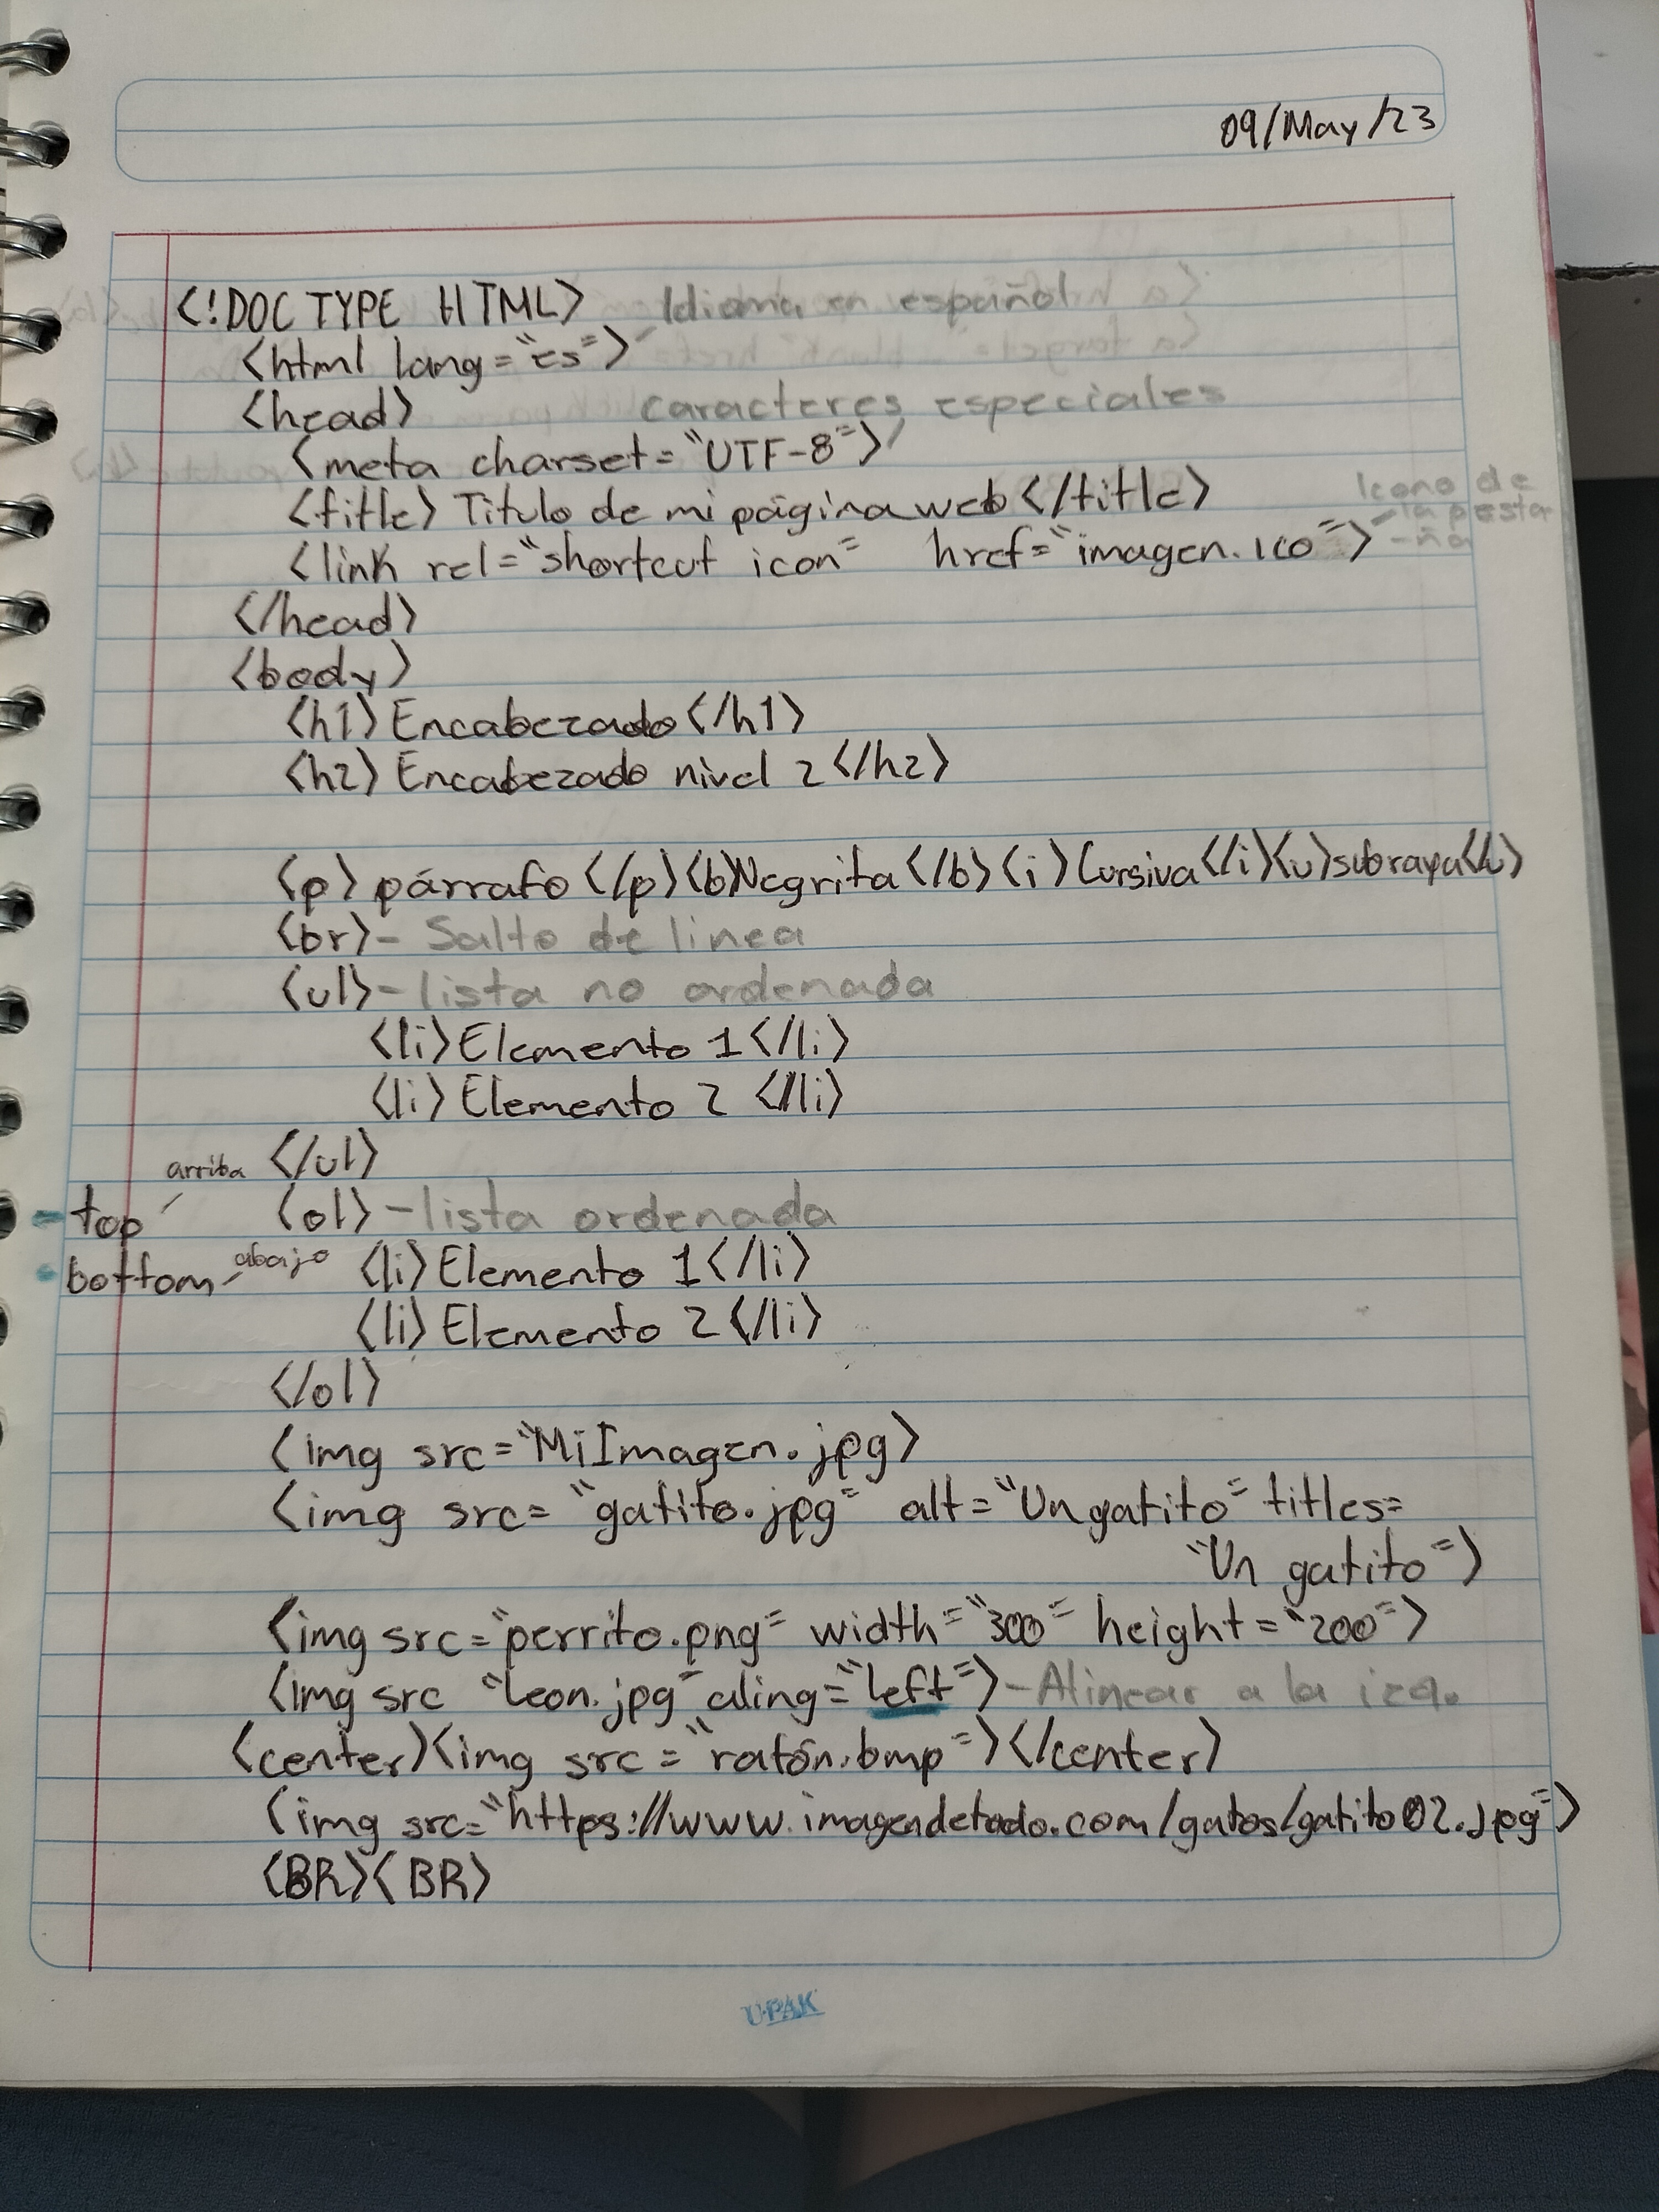 09/May/23
<!DOCTYPE HTML> Idioma en español
<html lang="es">
<head> caracteres especiales
<meta charset="UTF-8">
<title> Titulo de mi página web </title>
<link rel="shortcut icon" href="imagen.ico"> Icono de la pesta-ña
</head>
<body>
<h1> Encabezado </h1>
<h2> Encabezado nivel 2 </h2>
<p> párrafo </p><b>Negrita </b> <i> Cursiva </i><u>subraya</u>
<br> - Salto de linea
<ul> - lista no ordenada
<li> Elemento 1 </li>
<li> Elemento 2 </li>
arriba </ul>
- top <ol> - lista ordenada
bottom abajo <li> Elemento 1 </li>
<li> Elemento 2 </li>
</ol>
<img src="MiImagen.jpg>
<img src="gatito.jpg" alt="Un gatito" titles=
"Un gatito">
<img src="perrito.png" width="300" height="200">
<img src "leon.jpg" aling="left"> - Alinear a la izq.
<center><img src="ratón.bmp"></center>
<img src="https://www.imagendetodo.com/gatos/gatito02.jpg">
<BR><BR>
U-PAK